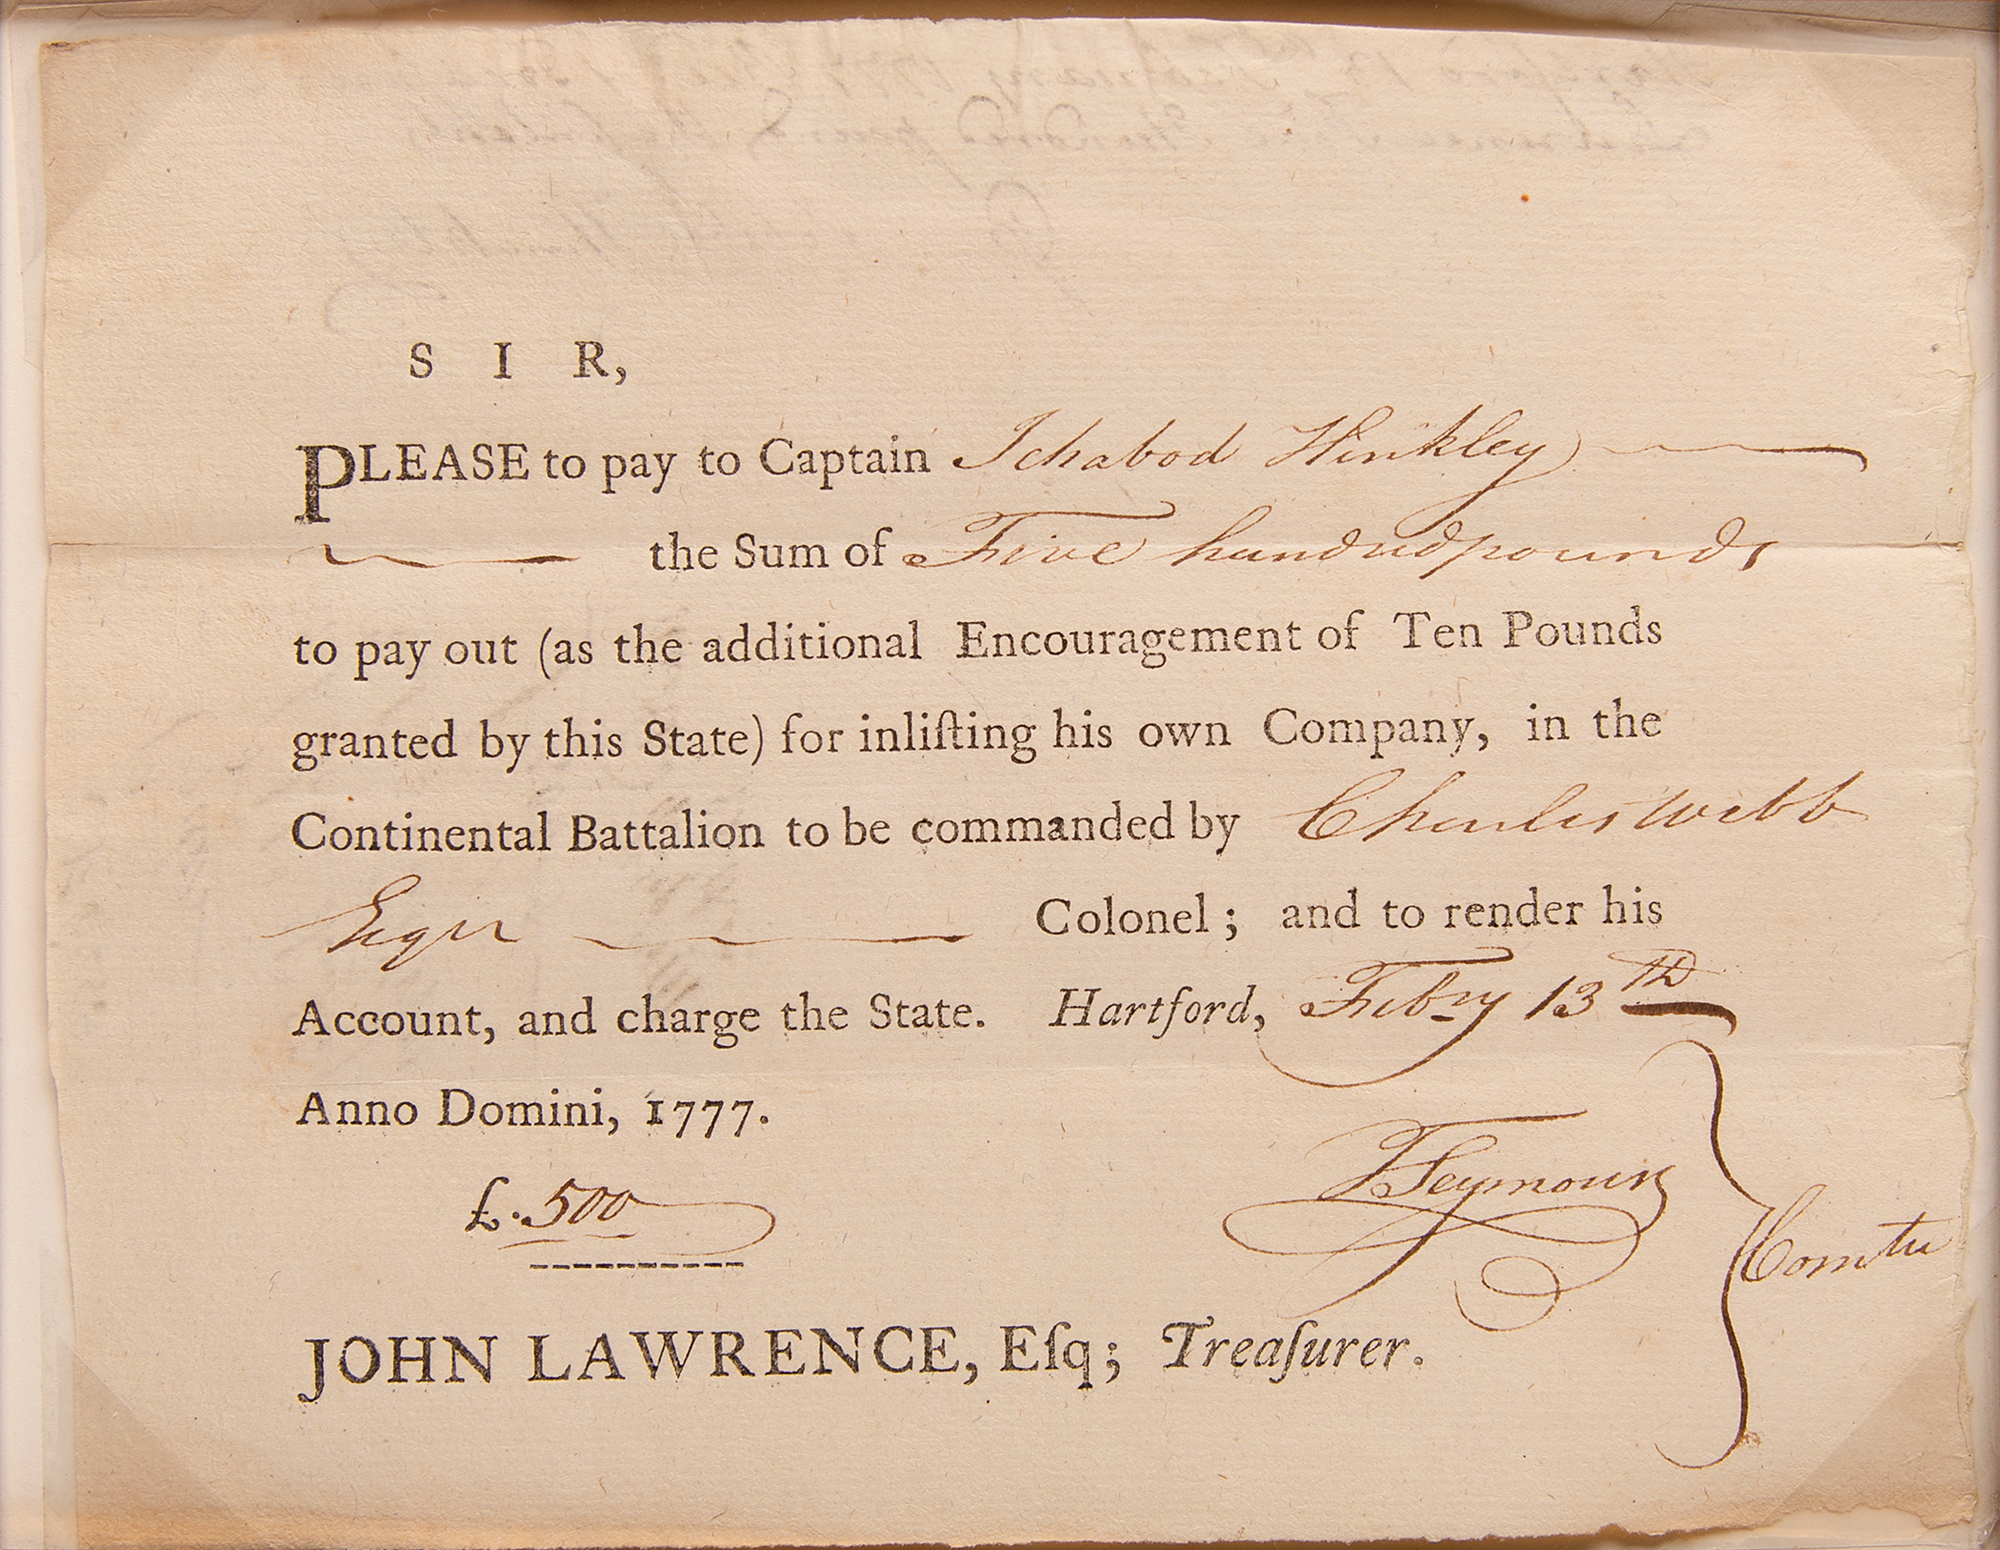 S I R,
PLEASE to pay to Captain Ichabod Hinkley
the Sum of Five hundred pounds
to pay out (as the additional Encouragement of Ten Pounds
granted by this State) for inliſting his own Company, in the
Continental Battalion to be commanded by Charles Webb
Esqr Colonel; and to render his
Account, and charge the State. Hartford, Febry 13th
Anno Domini, 1777.
£. 500
T Seymour
Comtee
JOHN LAWRENCE, Eſq; Treaſurer.